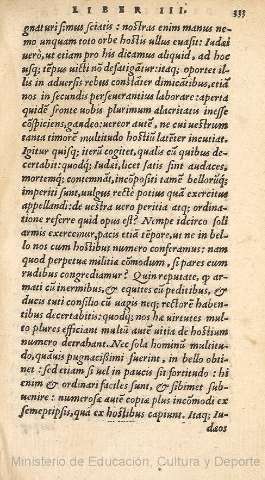 LIBER III. 333
gnaturi simus sciatis: nostras enim manus ne-
mo unquam toto orbe hostis ullus euasit: Iudæi
uerò, ut etiam pro his dicamus aliquid, ad hoc
usq; tēpus uicti nō defatigātur: itaq; oportet il-
lis in aduersis rebus constāter dimicātibus, etiā
nos in secundis perseuerantius laborare: aperta
quidē fronte uobis plurimum alacritatis inesse
cōspiciens, gaudeo: uereor autē, ne cui uestrum
tanta timorē multitudo hostiū latēter incutiat.
Igitur quisq; iterū cogitet, qualis cū quibus de-
certabit: quodq; Iudæi, licet satis sint audaces,
mortemq; contemnāt, incōpositi tamē bellorūq;
imperiti sunt, uulgus rectè potius quà exercitus
appellandi: de uestra uero peritia atq; ordina-
tione referre quid opus est? Nempe idcirco soli
armis exercemur, pacis etiā tēpore, ut ne in bel-
lo nos cum hostibus numero conferamus: nam
quod perpetuæ militiæ cōmodum, si pares cum
rudibus congrediamur? Quin reputate, ꝙ ar-
mati cū inermibus, & equites cū peditibus, &
ducis tuti consilio cū uagis neq; rectorē haben-
tibus decertabitis: quodq; nos hæ uirtutes mul-
to plures efficiant multū autē uitia de hostium
numero detrahant. Nec sola hominū multitu-
do, quāuis pugnacissimi fuerint, in bello obti-
net: sed etiam si uel in paucis sit fortitudo: hi
enim & ordinari faciles sunt, & sibimet sub-
uenire: numerosæ autē copiæ plus incōmodi ex
semetipsis, quà ex hostibus capiunt. Itaq; Iu-
dæos
Ministerio de Educación, Cultura y Deporte